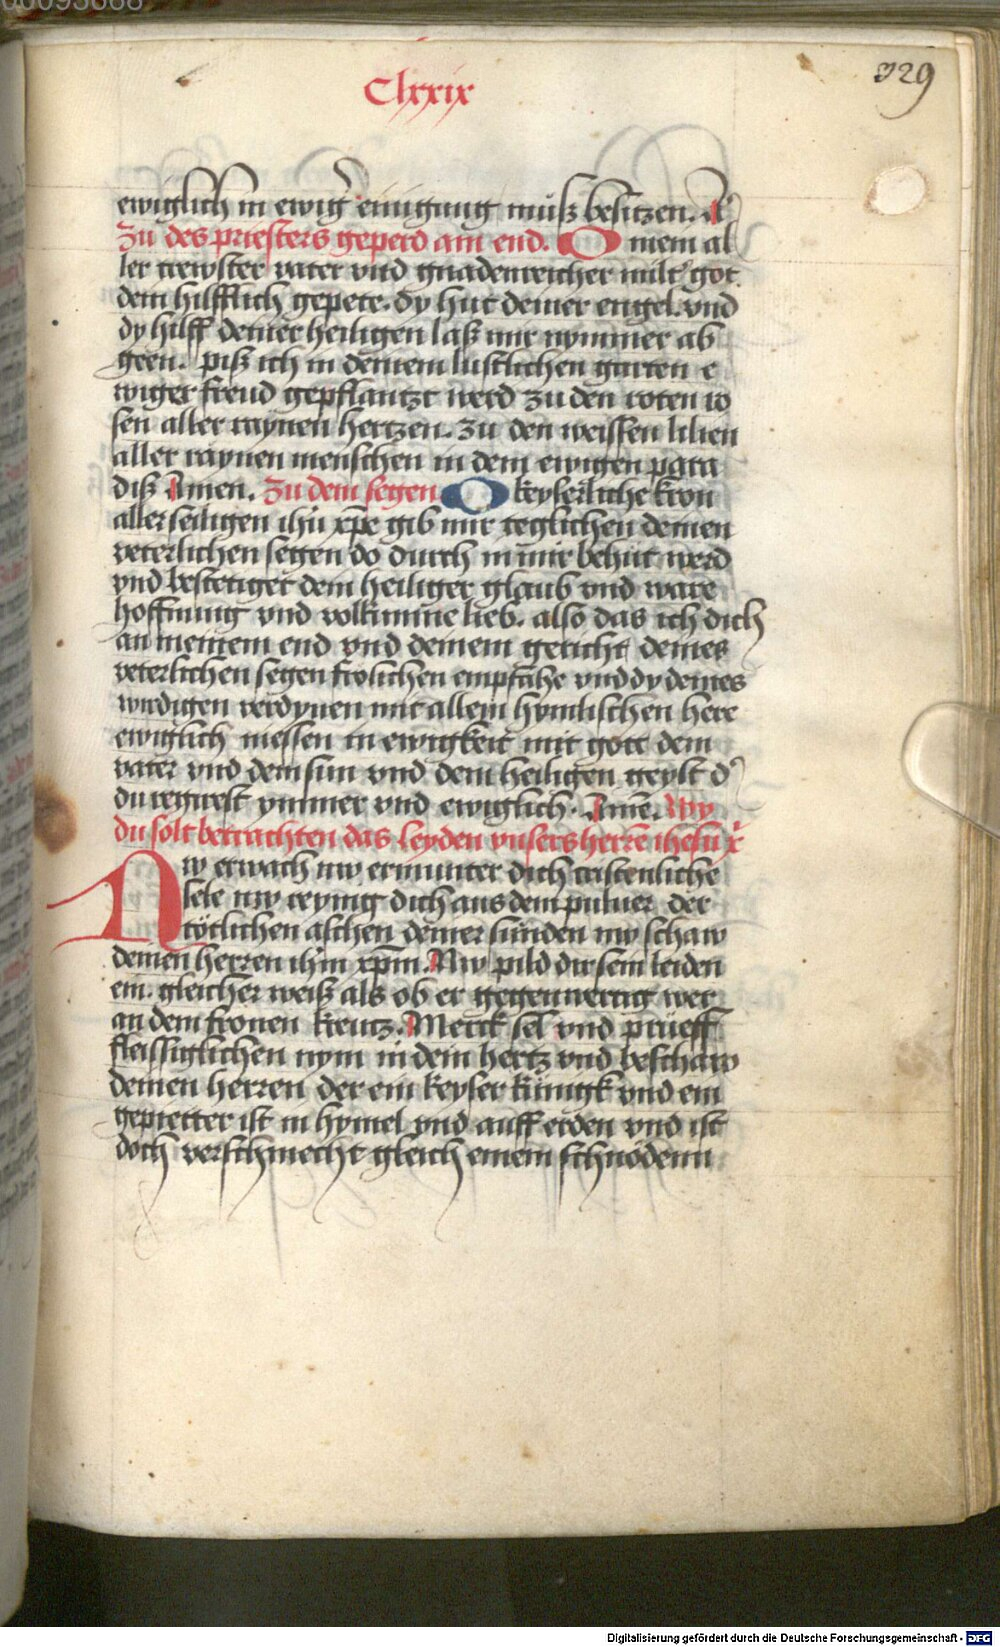 00093668
Clxxix
329
ewiglich in ewigˀ einigung müsz besitzen. Aˀ
Zu des priesters gepetd am end. O mein al
ler trewster vater vnd gnadenreicher miltˀ got
dein hilfflich gepete. dy hut deiner engel. vnd
dy hilff deiner heiligen lasz mir nymmer ab
geen. pisz ich in deinem lustlichen garten e
wiger freud gepflantzt werd zu den roten ro
sen aller raynen hertzen. zu den weissen lilien
aller raynen menschen in dem ewigen para
disz Amen. Zu dem segen O keyserliche kron
aller seiligen ihū xp̄e gib mir teglichen deinen
veterlichen segen do durch in mir behut werd
vnd bestetiget dein heiliger glaub vnd ware
hoffnung vnd volkumne lieb. also das ich dich
an meinem end vnd deinem gericht deines
veterlichen segen frolichen empfahe vnd dy deines
wirdigen verdynen mit allem hymlischen here
ewiglich niessen in ewigkeit mit gott dem
vater vnd dem sun vnd dem heiligen geyst dˀ
du regnest ymmer vnd ewiglich. Amē. Wy
du solt betrachten das leyden vnsers herrē ihesu xˀ
Nw erwach nw ermunter dich cristenliche
sele nw reynig dich aus dem puluer der
tötlichen aschen deiner sunden nw schaw
deinen herren ihm xp̄m. Nw pild dir sein leiden
ein. gleicher weisz als ob er gegenwertig wer
an dem fronen kreutz. Merck sel vnd prüeff
fleissiglichen nym in dein hertz vnd beschaw
deinen herren der ein keyser künigk vnd ein
gepietter ist in hymel vnd auff erden vnd ist
doch verschmecht gleich einem schnödenn
Digitalisierung gefördert durch die Deutsche Forschungsgemeinschaft - DFG